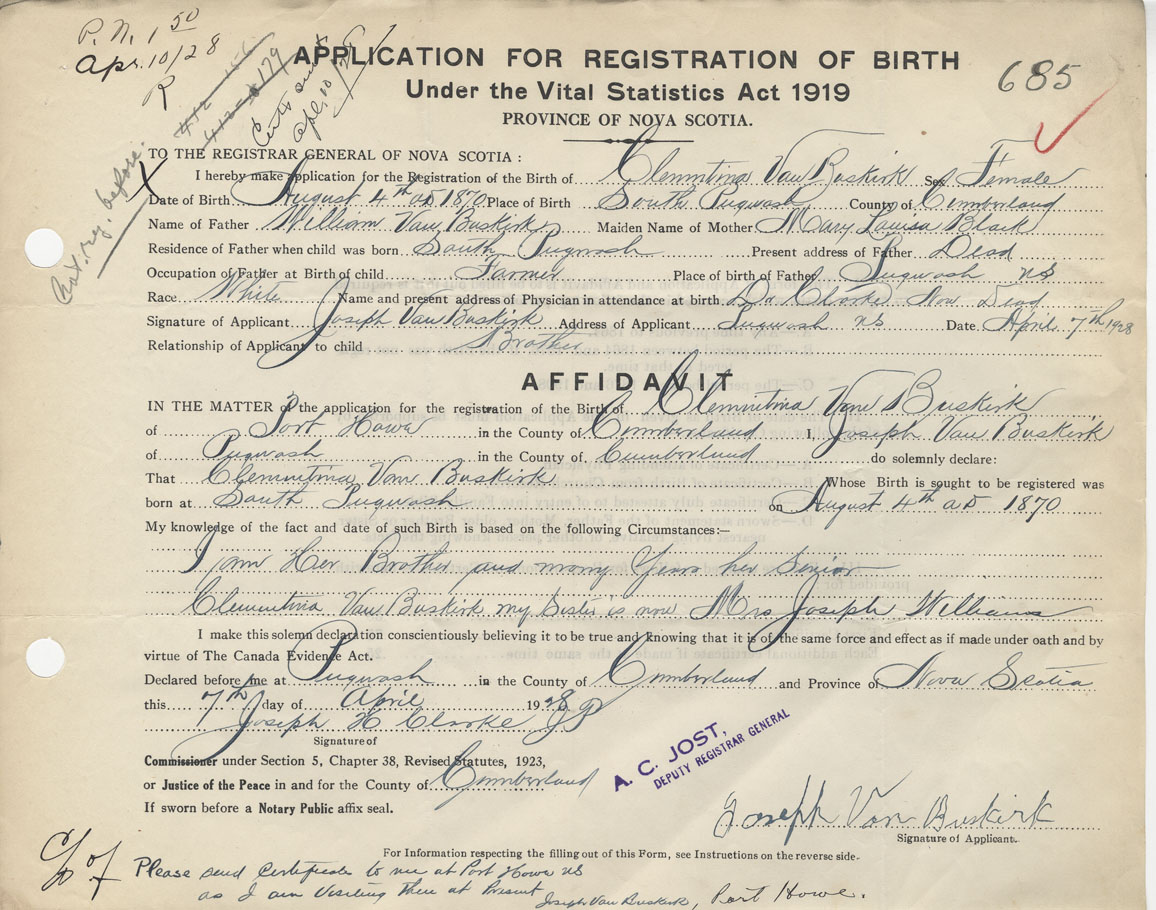 P. N. 1 50
Apr. 10/28
R
412 179
Apl. 10/28
Cert. reg. before.
685
APPLICATION FOR REGISTRATION OF BIRTH
Under the Vital Statistics Act 1919
PROVINCE OF NOVA SCOTIA.
TO THE REGISTRAR GENERAL OF NOVA SCOTIA :
I hereby make application for the Registration of the Birth of Clemmtina Van Buskirk Sex Female
Date of Birth August 4th AD 1870 Place of Birth South Pugwash County of Cumberland
Name of Father William Van Buskirk Maiden Name of Mother Mary Louisa Black
Residence of Father when child was born South Pugwash Present address of Father Dead
Occupation of Father at Birth of child Farmer Place of birth of Father Pugwash NS
Race White Name and present address of Physician in attendance at birth Dr Clarke Now Dead
Signature of Applicant Joseph Van Buskirk Address of Applicant Pugwash NS Date April 7th 1928
Relationship of Applicant to child Brother
AFFIDAVIT
IN THE MATTER of the application for the registration of the Birth of Clemmtina Van Buskirk
of Port Howe in the County of Cumberland I, Joseph Van Buskirk
of Pugwash in the County of Cumberland do solemnly declare:
That Clemmtina Van Buskirk Whose Birth is sought to be registered was
born at South Pugwash on August 4th AD 1870
My knowledge of the fact and date of such Birth is based on the following Circumstances:—
I am Her Brother and many Years her Senior
Clemmtina Van Buskirk my Sister is now Mrs Joseph Williams
I make this solemn declaration conscientiously believing it to be true and knowing that it is of the same force and effect as if made under oath and by
virtue of The Canada Evidence Act.
Declared before me at Pugwash in the County of Cumberland and Province of Nova Scotia
this 7th day of April 1928
Joseph H Clarke JP
Signature of
Commissioner under Section 5, Chapter 38, Revised Statutes, 1923,
or Justice of the Peace in and for the County of Cumberland
If sworn before a Notary Public affix seal.
A. C. JOST,
DEPUTY REGISTRAR GENERAL
Joseph Van Buskirk
Signature of Applicant.
For Information respecting the filling out of this Form, see Instructions on the reverse side.
C/o of
Please send Certificate to me at Port Howe NS
as I am Visiting there at Present
Joseph Van Buskirk, Port Howe.